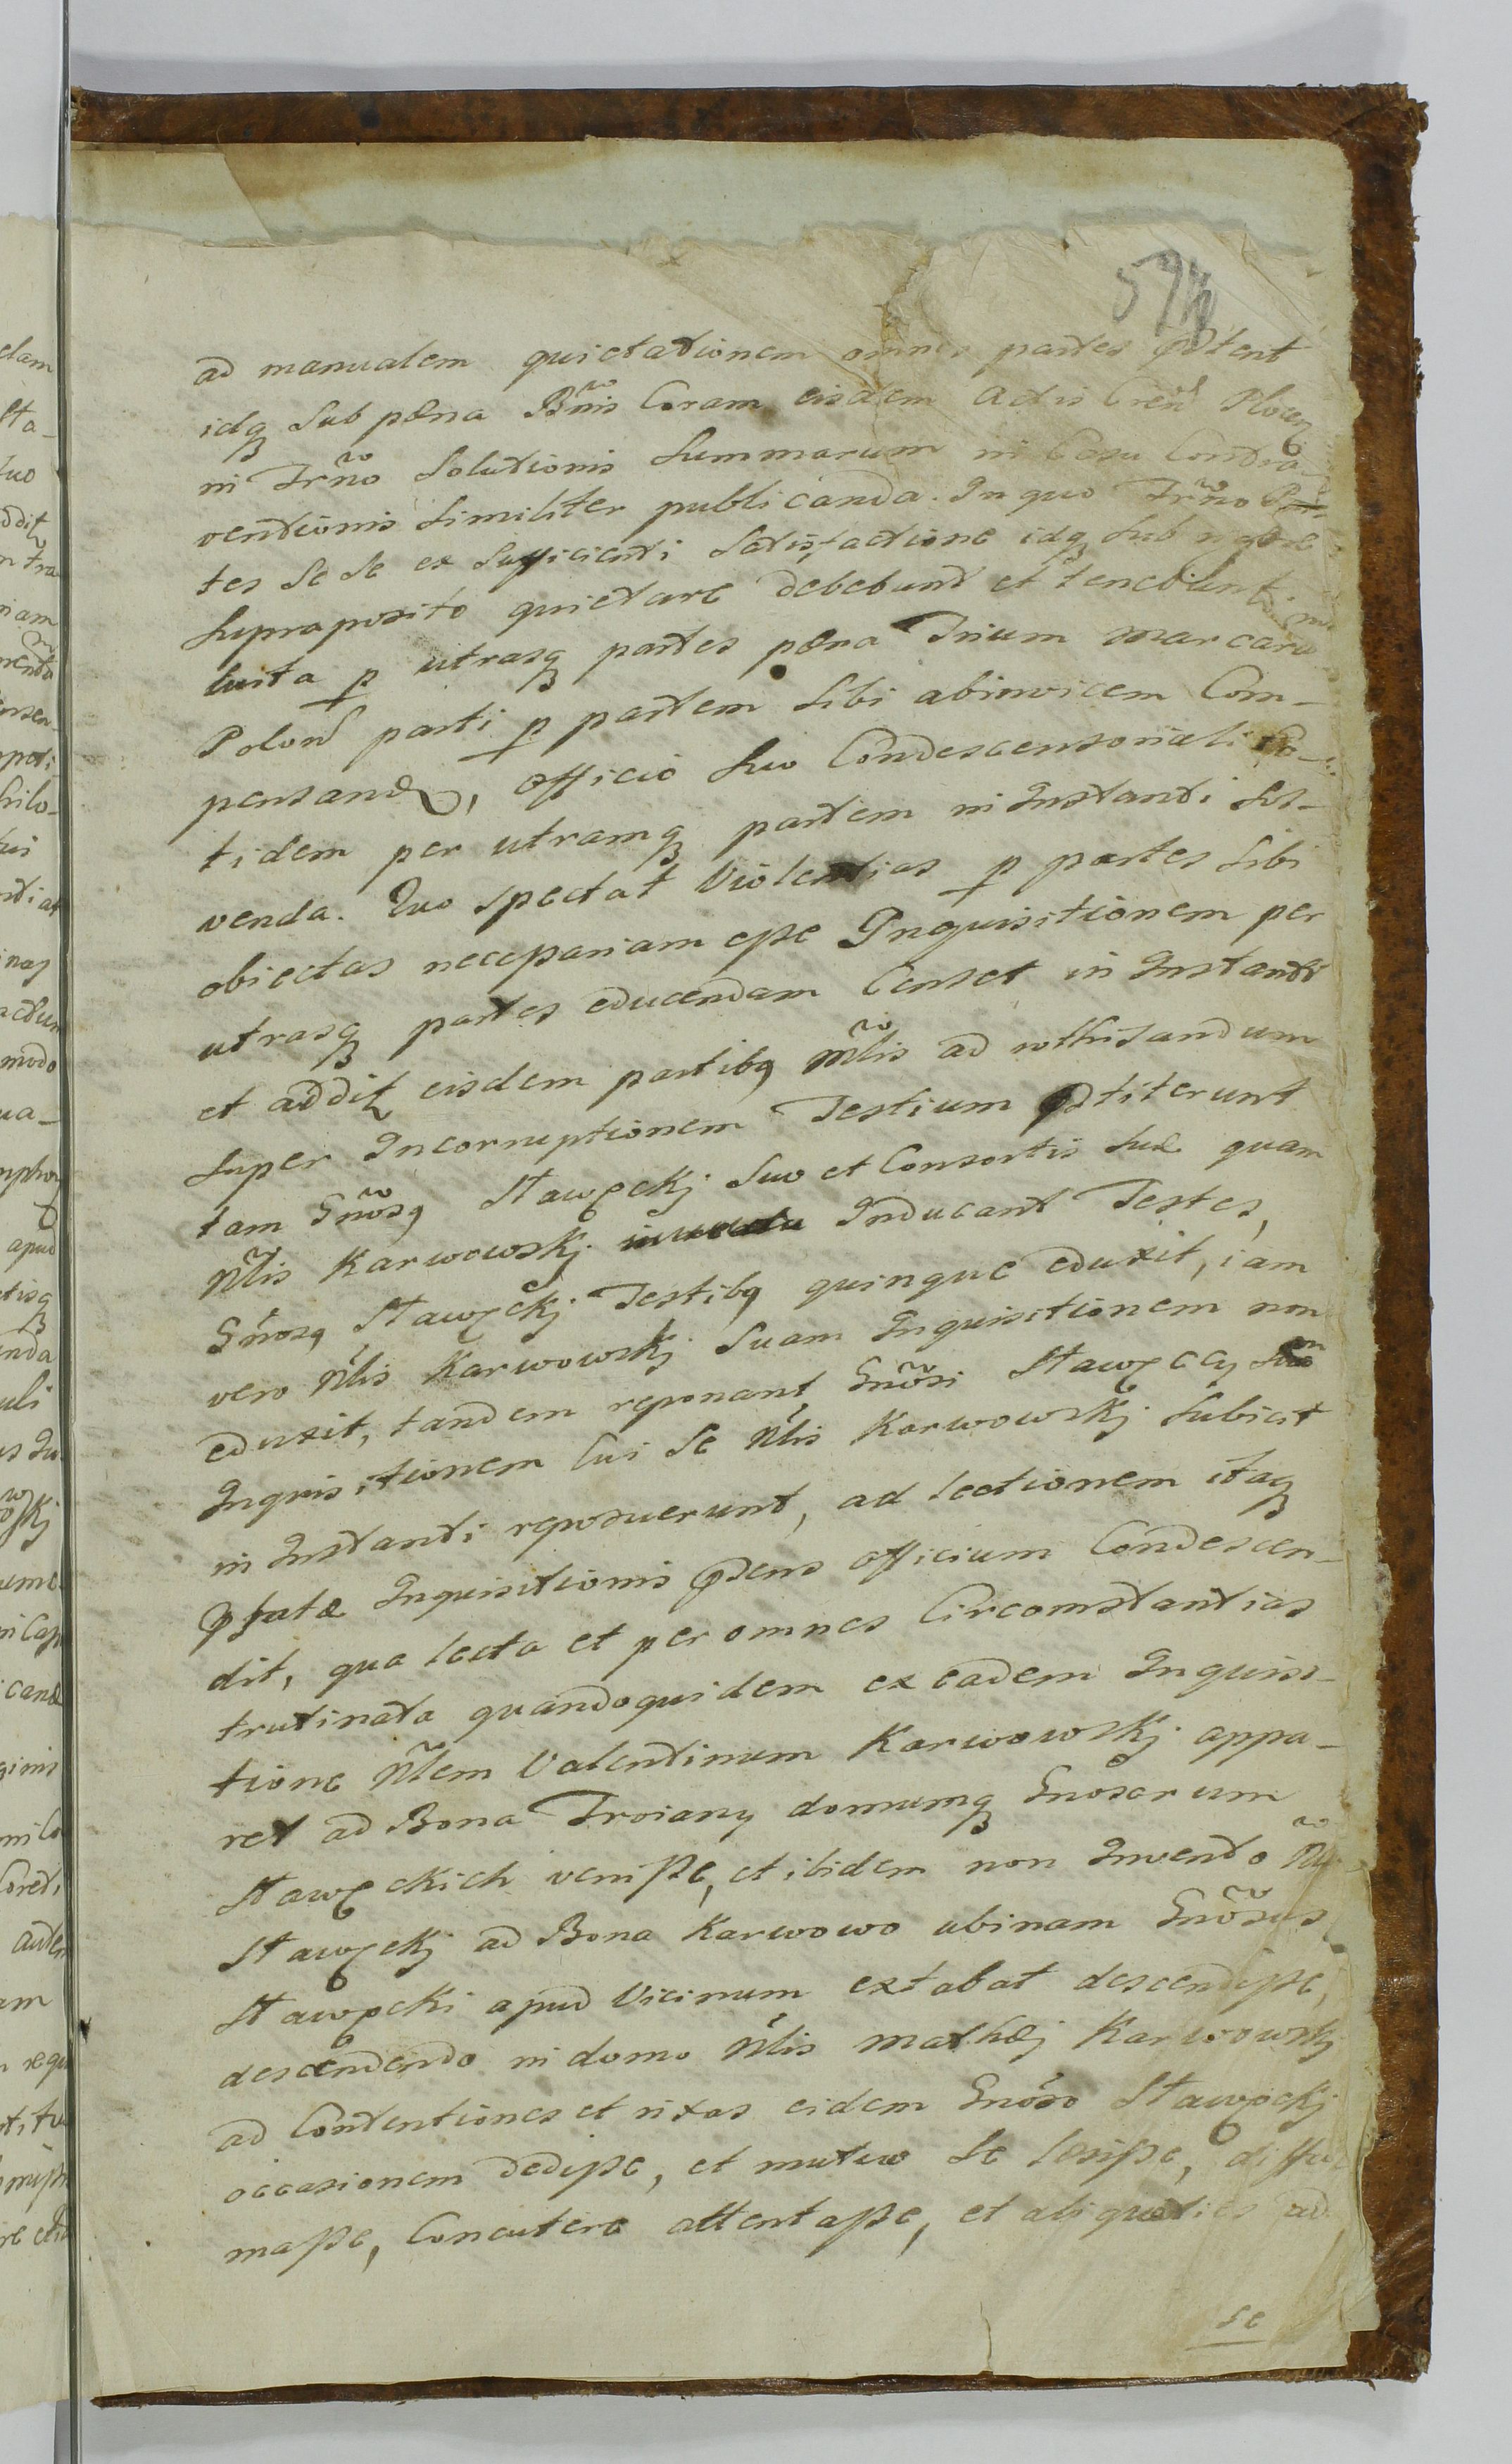 ad manualem quietationem omnes partes pstent
idq sub pæna Bñis Coram eisdem Actis Cren Plocen
in Trño Solutionis Summarum in Casu Contra
ventionis Similiter publicanda. In quo Trño
tes Se Se ex Sufficienti Satisfactione idq sub rigore
Supraposito quietare debebunt et tenebunt.
luita p utrasq partes pæna Trium Marcaru
Polon parti p partem Sibi abinvicem Com-
pensand, officio suo Condescensoriali to-
tidem per utramq partem in Instanti Sol-
venda. Quo spectat Violentias p partes Sibi
obiectas necessariam esse Inquisitionem per
utrasq partes educendam Censet in Instanti
et addit eisdem partibq Nlis ad rothisandum
Super Incorruptionem Testium pstiterunt
tam Gñosq Stawecky Suo et Consortis Suæ quam
Nlis Karwowskj Inducant Testes,
Gñosq Staweckj Testibq quinque eduxit, iam
vero Nlis Karwowskj Suam Inquisitionem non
eduxit, tandem reponant Gñosi Staweccy
Inquisitionem Cui Se Nlis Karwowskj Subiecit
in Instanti reposuerunt, ad lectionem itaq
pfatæ Inquisitionis psens officium Condescen-
dit, qua lecta et per omnes Circomstantias
trutinata quandoquidem ex eadem Inquisi-
tione Nlem Valentinum Karwowskj appa-
ret ad Bona Troiany domumq Gnosorum
Staweckich venisse, et ibidem non Invento
Staweckj ad Bona Karwowo ubinam Gñosus
Stawecki apud Vicinum extabat descendisse,
descendendo in domo Nlis Mathæj Karwowskj
ad Contentiones et rixas eidem Gnoso Staweckj
occasionem dedisse, et mutuo Se læsisse, diffa-
masse, Concutere attentasse, et aliquoties ad
se